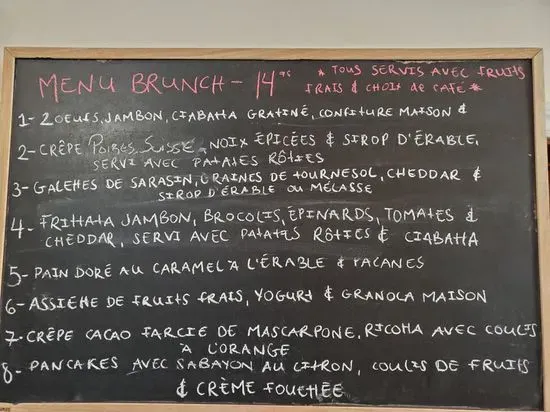 MENU BRUNCH - 14.95 * TOUS SERVIS AVEC FRUITS
FRAIS & CHOIX de CAFÉ *
1- 2 OEUFS, JAMBON, CIABATTA GRATINÉ, CONFITURE MAISON &
2- CRÊPE Poires, Suisse, NOIX ÉPICÉES & SIROP D'ÉRABLE,
SERVI AVEC PATATES RÔTIES
3- GALETTES DE SARASIN, GRAINES DE TOURNESOL, CHEDDAR &
SIROP D'ÉRABLE OU MÉLASSE
4- FRITTATA JAMBON, BROCOLIS, ÉPINARDS, TOMATES &
CHEDDAR, SERVI AVEC PATATES RÔTIES & CIABATTA
5- PAIN DORÉ AU CARAMEL À L'ÉRABLE & PACANES
6- ASSIETTE DE FRUITS FRAIS, YOGURT & GRANOLA MAISON
7- CRÊPE CACAO FARCIE DE MASCARPONE, RICOTTA AVEC COULIS
À L'ORANGE
8- PANCAKES AVEC SABAYON AU CITRON, COULIS DE FRUITS
& CRÈME FOUETTÉE